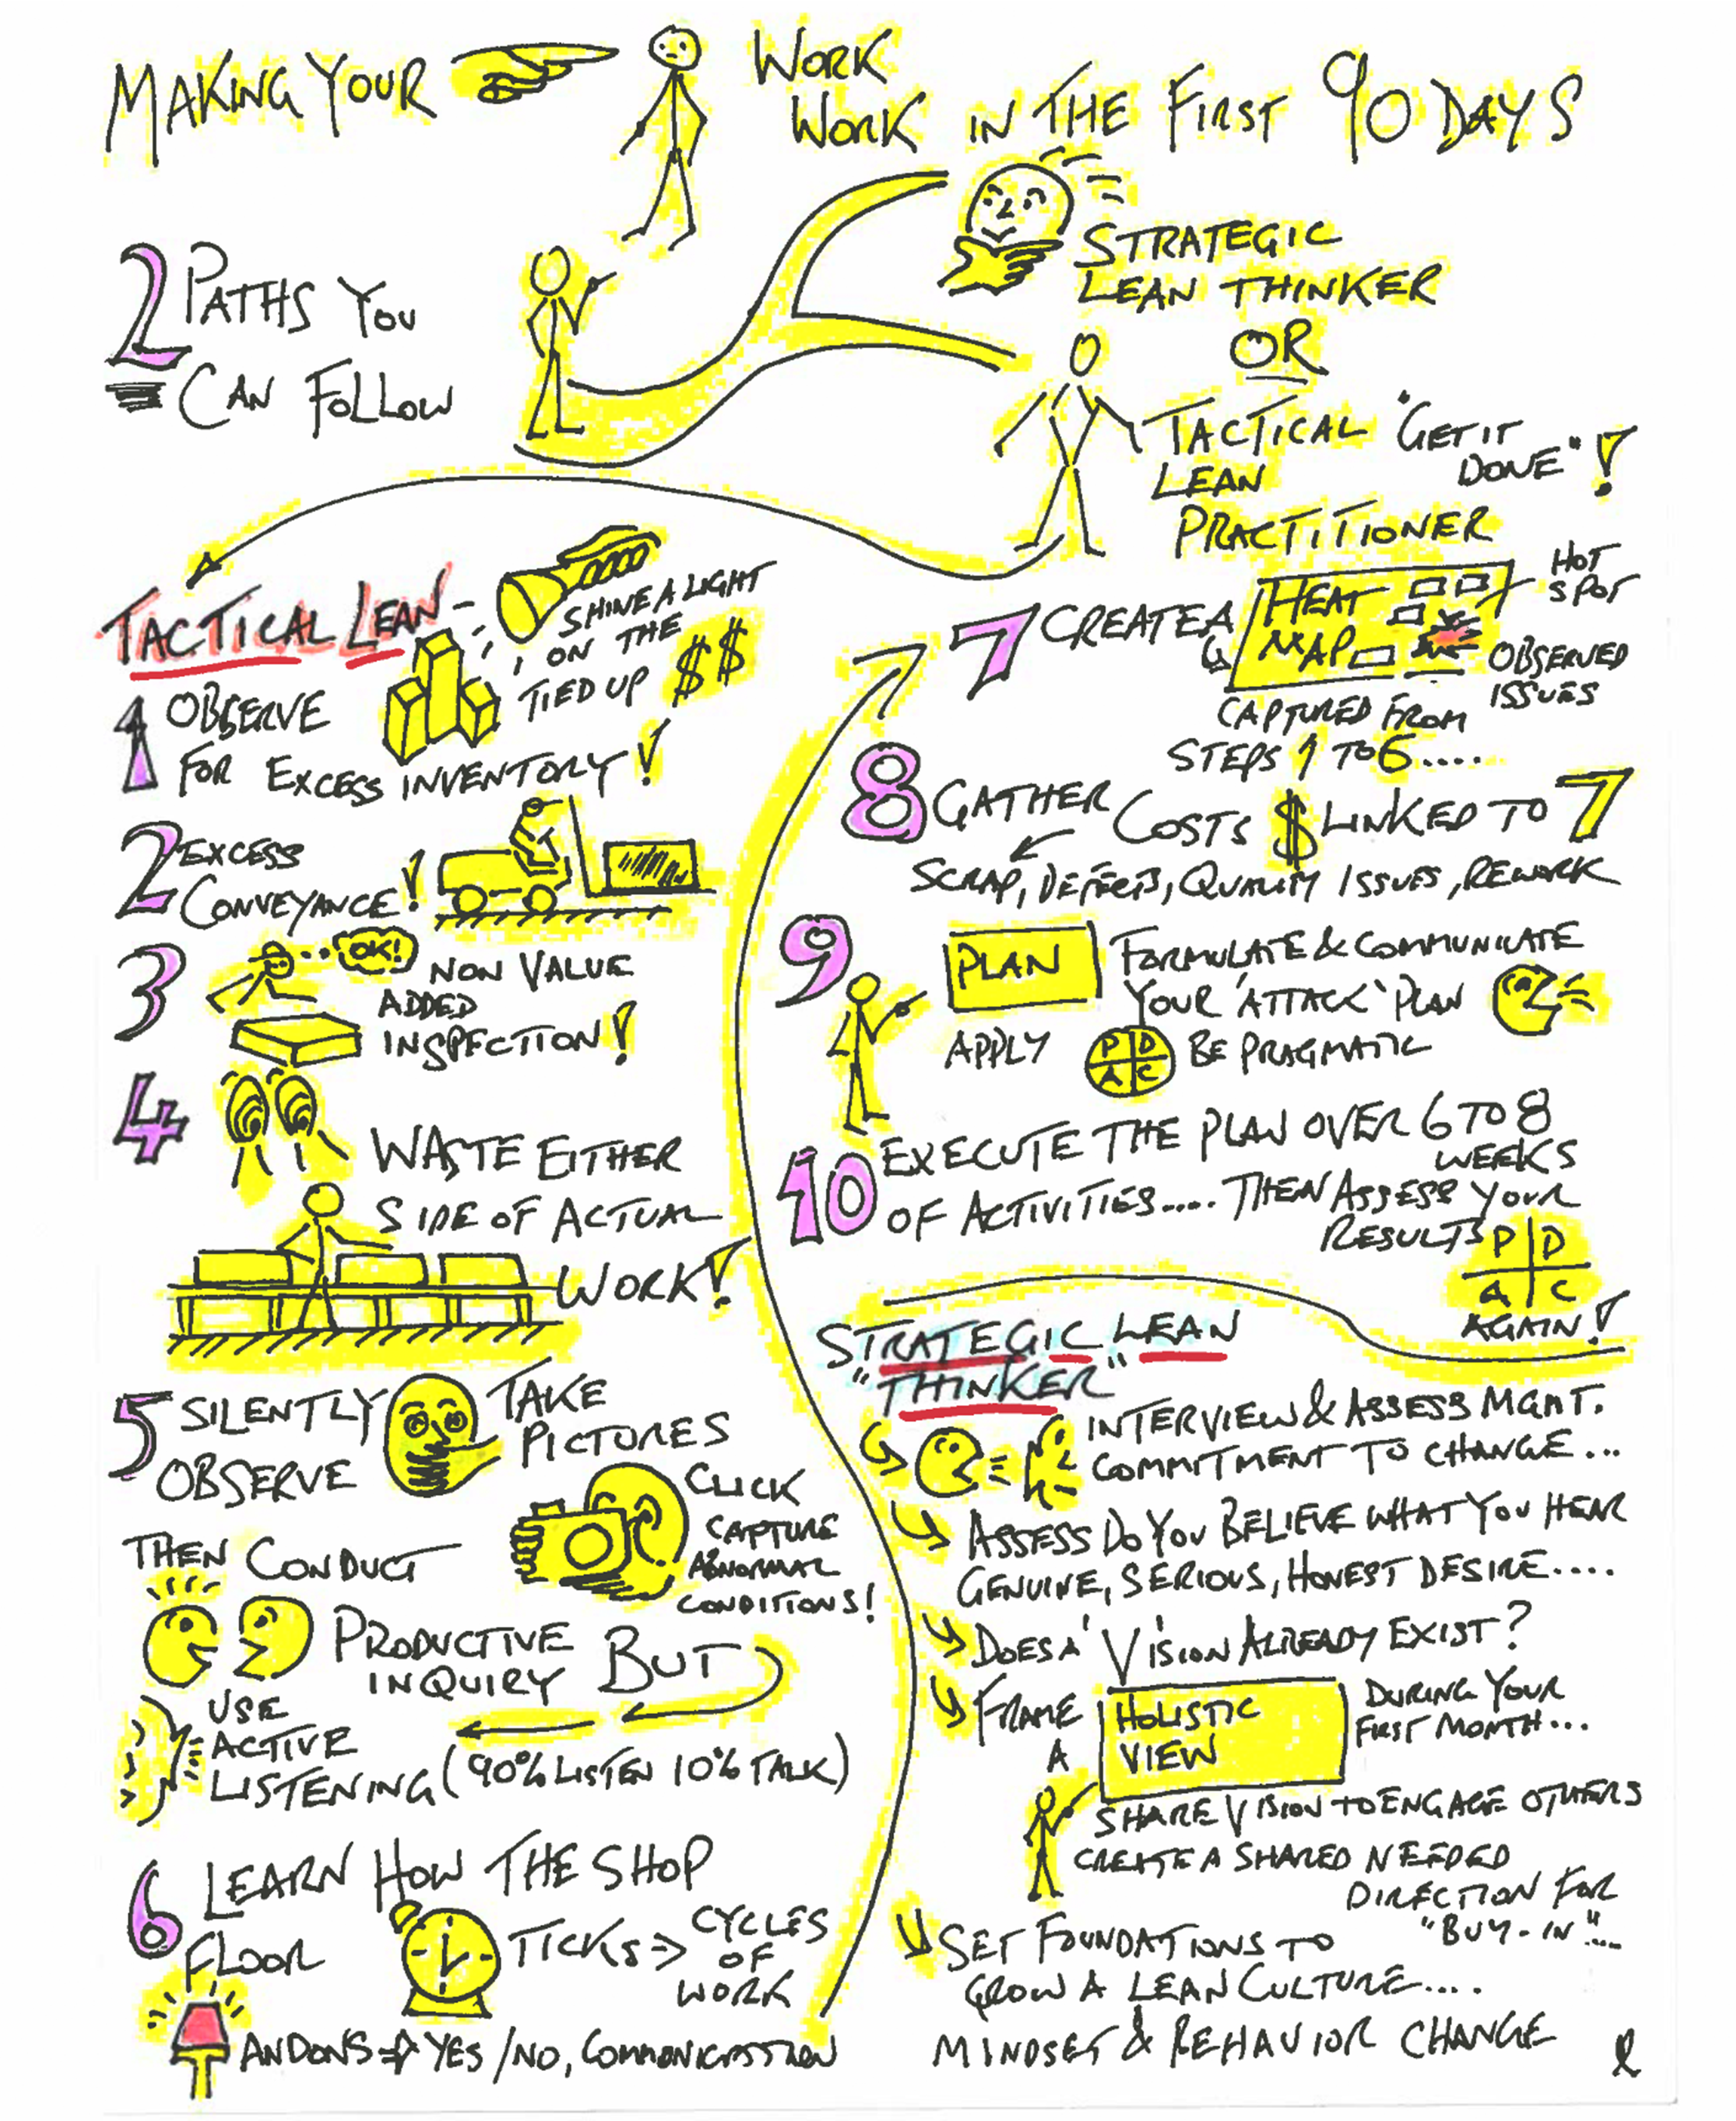 MAKING YOUR WORK
WORK IN THE FIRST 90 DAYS
2 PATHS YOU
CAN FOLLOW
STRATEGIC
LEAN THINKER
OR
TACTICAL "GET IT
DONE"!
LEAN
PRACTITIONER
TACTICAL LEAN -
SHINE A LIGHT
ON THE
TIED UP $$
1 OBSERVE
FOR EXCESS INVENTORY!
2 EXCESS
CONVEYANCE!
3 OK! NON VALUE
ADDED
INSPECTION!
4
WASTE EITHER
SIDE OF ACTUAL
WORK!
5 SILENTLY
OBSERVE
TAKE
PICTURES
CLICK
CAPTURE
ABNORMAL
CONDITIONS!
THEN CONDUCT
PRODUCTIVE
INQUIRY BUT
USE
ACTIVE
LISTENING (90% LISTEN 10% TALK)
6 LEARN HOW THE SHOP
FLOOR TICKS ⇒ CYCLES
OF
WORK
ANDONS ⇒ YES/NO, COMMUNICATION
7 CREATE A HEAT
MAP
HOT
SPOT
OBSERVED
ISSUES
CAPTURED FROM
STEPS 1 TO 6....
8 GATHER COSTS $ LINKED TO 7
SCRAP, DEFECTS, QUALITY ISSUES, REWORK
9 PLAN FORMULATE & COMMUNICATE
YOUR 'ATTACK' PLAN
APPLY P D
A C BE PRAGMATIC
10 EXECUTE THE PLAN OVER 6 TO 8
WEEKS
OF ACTIVITIES..... THEN ASSESS YOUR
RESULTS P D
A C
AGAIN!
STRATEGIC LEAN
"THINKER"
INTERVIEW & ASSESS MGMT.
COMMITMENT TO CHANGE...
ASSESS DO YOU BELIEVE WHAT YOU HEAR
GENUINE, SERIOUS, HONEST DESIRE....
DOES A' VISION ALREADY EXIST?
FRAME
A
HOLISTIC
VIEW
DURING YOUR
FIRST MONTH...
SHARE VISION TO ENGAGE OTHERS
CREATE A SHARED NEEDED
DIRECTION FOR
"BUY-IN"...
SET FOUNDATIONS TO
GROW A LEAN CULTURE....
MINDSET & BEHAVIOR CHANGE